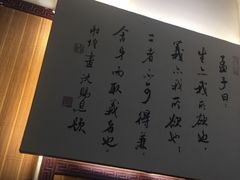 孟子曰：
生亦我所欲也，
義亦我所欲也，
二者不可得兼，
舍身而取義者也，
沈鵬題